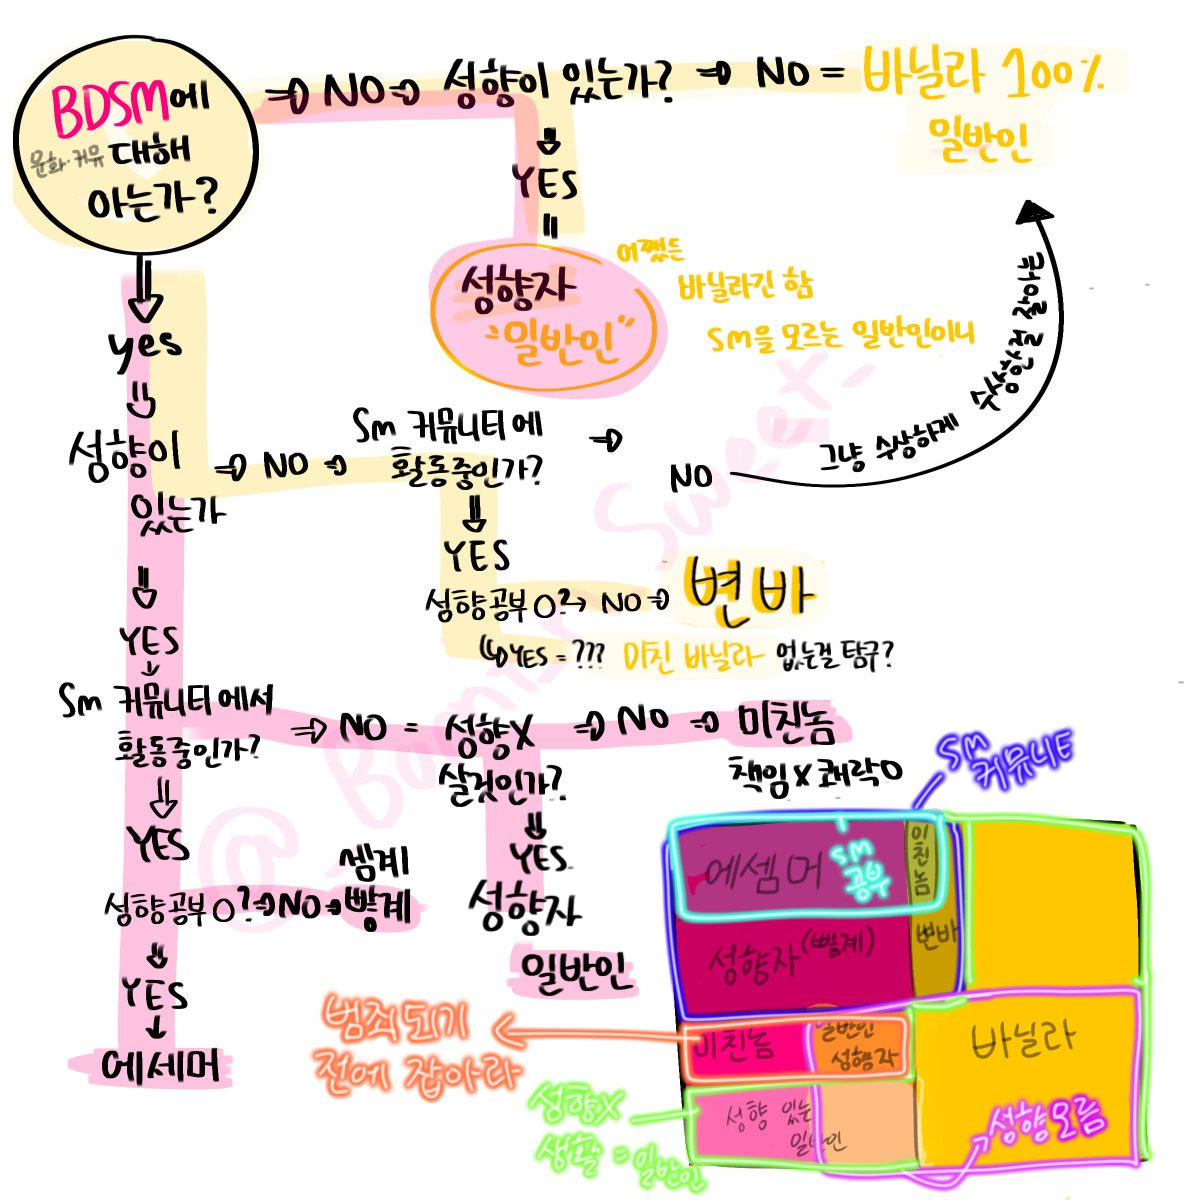 BDSM에
문화·커뮤 대해
아는가?
⇒ NO ⇒ 성향이 있는가? ⇒ NO = 바닐라 100%
일반인
⇓
YES
॥
성향자
"일반인"
어쨌든
바닐라긴 함
SM을 모르는 일반인이니
⇓
yes
⇓
성향이
있는가
⇒ NO ⇒
Sm 커뮤니티에
활동중인가?
⇒
NO
그냥 수상하게 수상한걸 잘아는
⇓
YES
성향공부 O? → NO ⇒ 변바
↳ YES = ??? 미친 바닐라 없는걸 탐구?
⇓
YES
↓
Sm 커뮤니티에서
활동중인가?
⇒ NO = 성향X
살것인가?
⇒ NO ⇒ 미친놈
책임X쾌락O
⇓
YES
성향자
일반인
⇓
YES
성향공부 O? ⇒ NO → 빨계
섹계
⇓
YES
↓
에세머
SM
커뮤니티
에셈머
SM
공부
미친놈
성향자(빨계)
변바
미친놈
일반인
성향자
바닐라
성향 있는
일반인
성향모름
범죄되기
전에 잡아라
성향X
생활=일반인
@Bami Sweet_